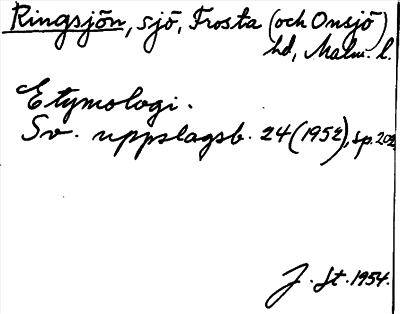 Ringsjön, sjö, Frosta (och Onsjö)
hd, Malm. l.
Etymologi.
Sv. uppslagsb. 24 (1952), sp. 202
J. St. 1954.